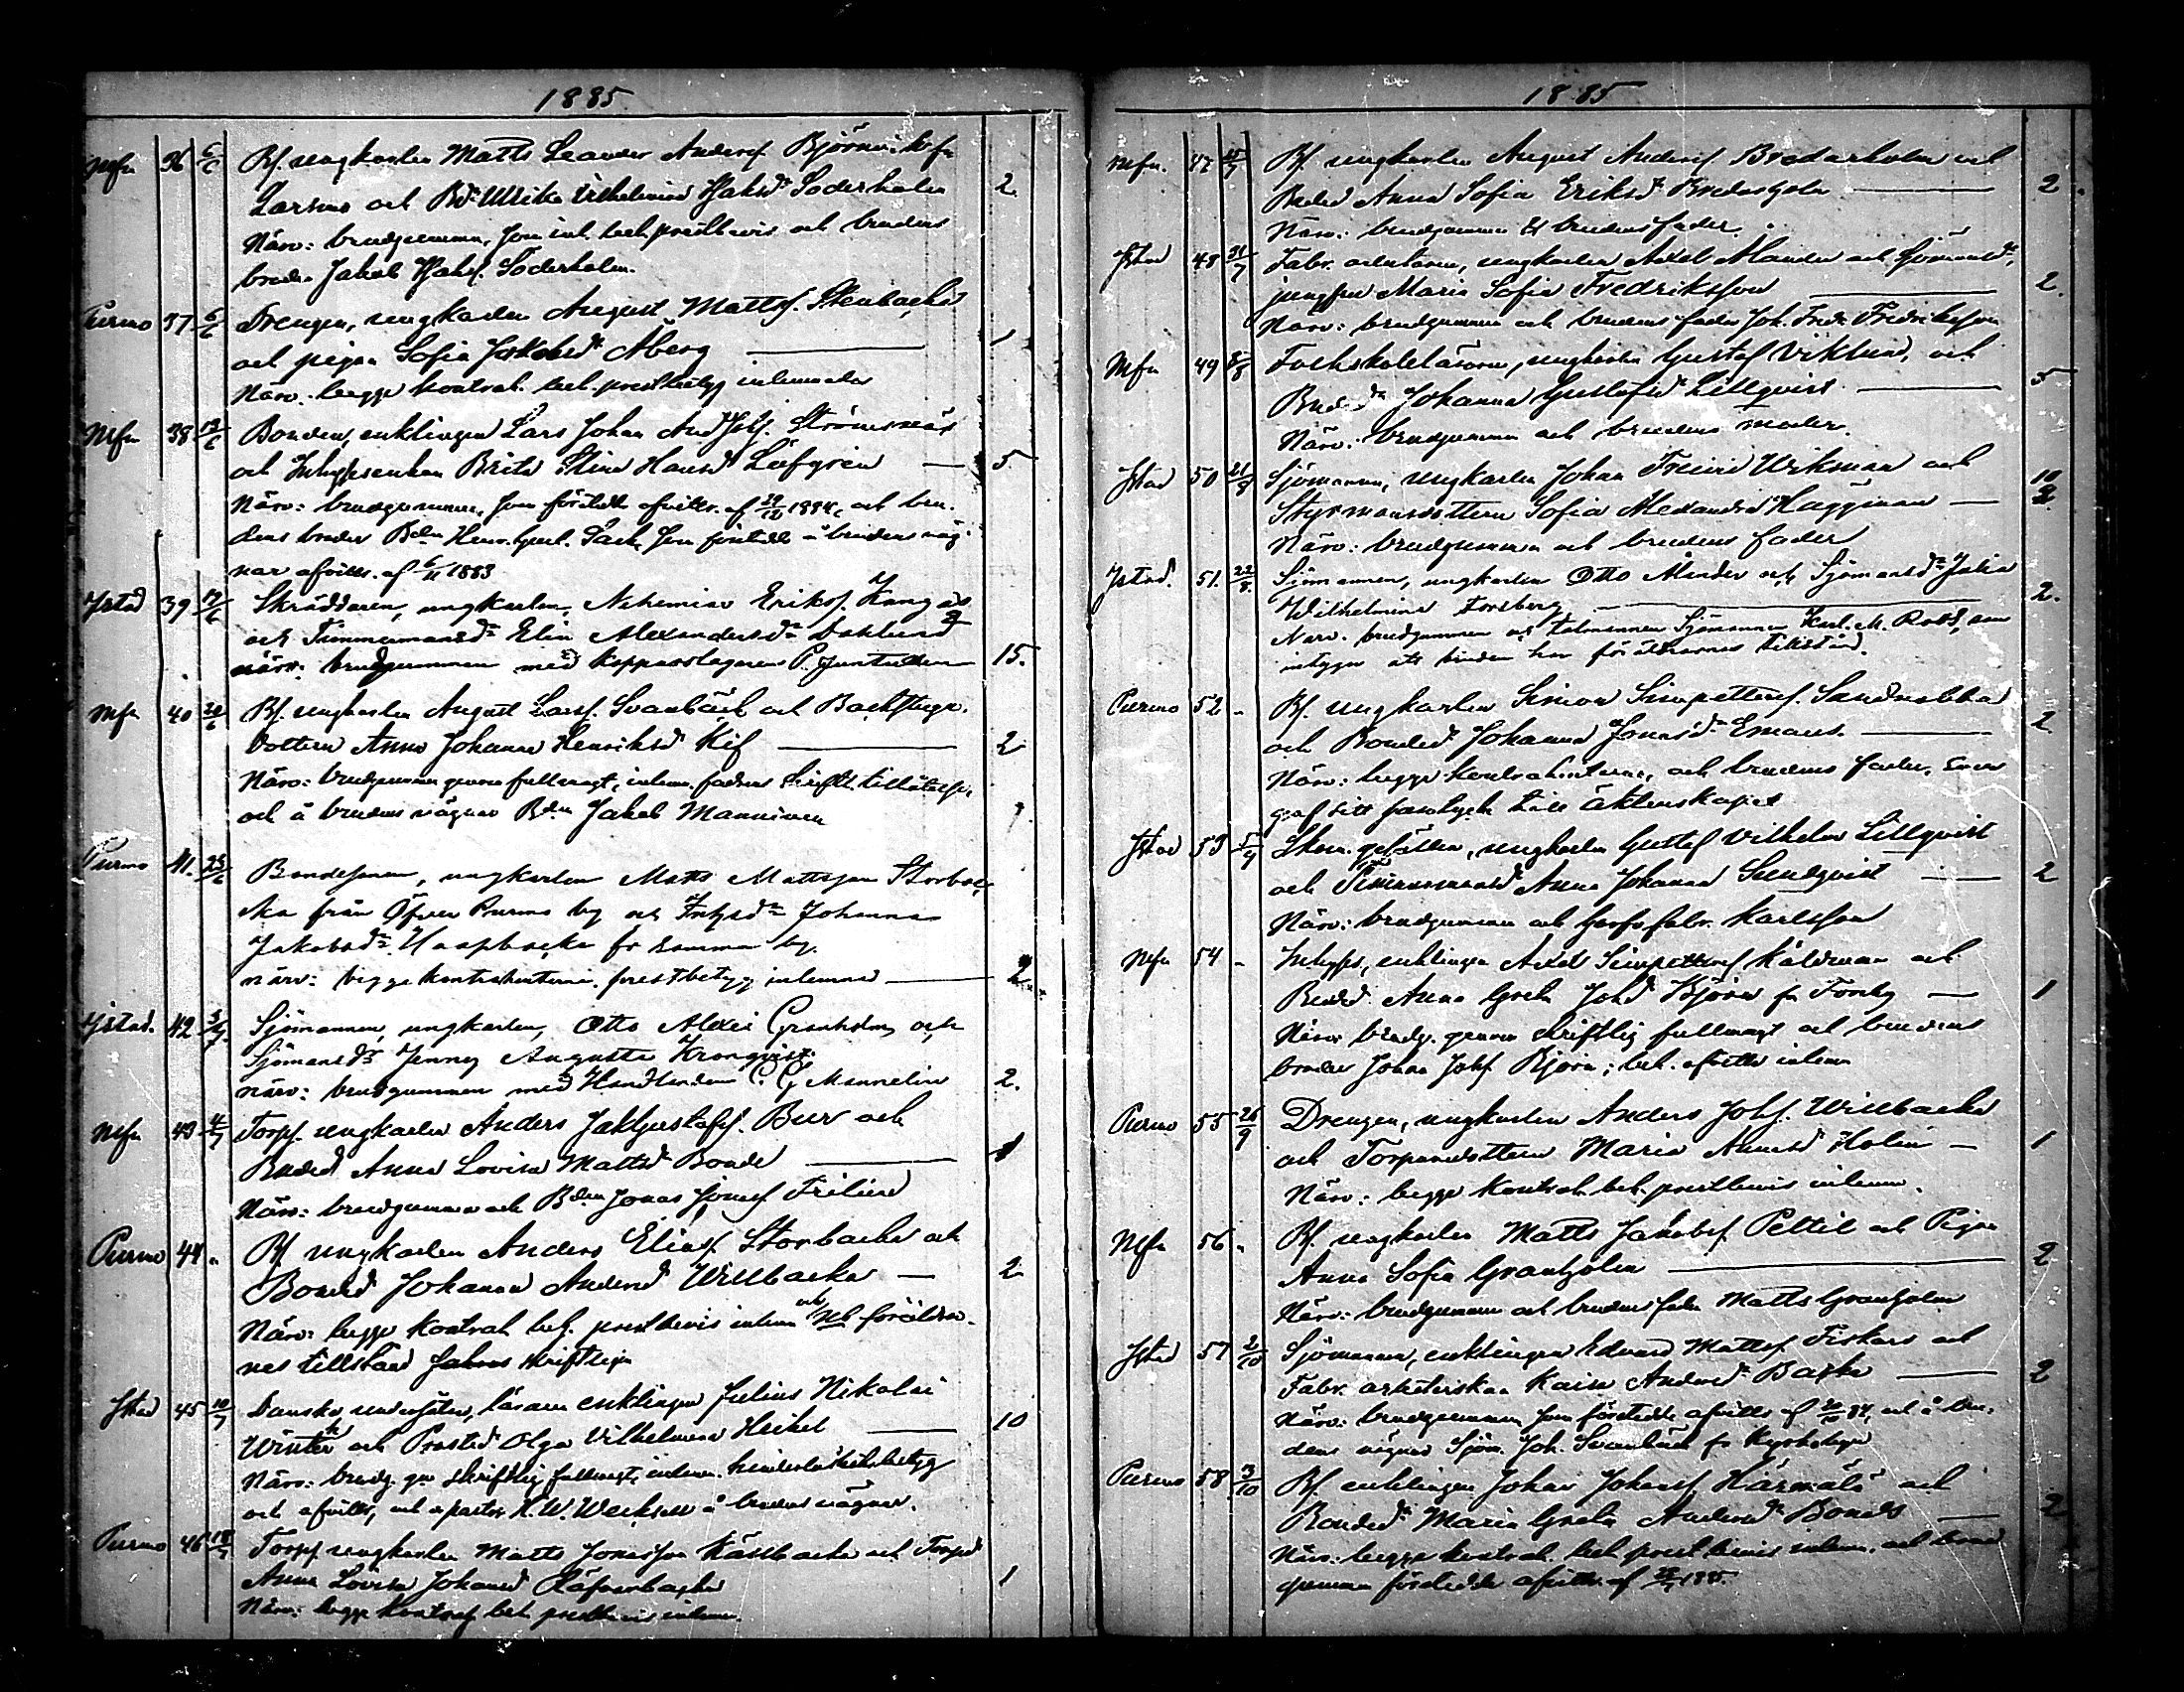 1885
Mfn 36 6/6 Bf. ungkarlen Matts Leander Andersf. Björnvik fr
Larsmo och Bd. Ulrika Vilhelmina Söderholm 2.
Närv: brudgummen, som inl. beh. prestbevis och brudens
broder Jakob Söderholm.
Purmo 37 6/6 Drengen, ungkarlen August Mattsf. Stenbacka
och pigan Sofia Jakobsdr Åberg 1
Närv: begge kontrah. beh. prestbetyg inlemnades
Mfn 38 13/6 Bonden, enklingen Lars Johan Strömsnäs
och Inhysesenkan Brita Stina Hansd Löfgren 5
Närv: brudgummen, som företedde afvittr. af 29/12 1884, och bru-
dens broder Bdn Henr. Gust. Sack, som företedde å brudens väg-
nar afvittr. af 6/11 1883
Jstad 39 17/6 Skräddaren, ungkarlen, Nehemias Eriksf. Kangas
och Timmermansdr Elin Alexandersdr
närv: brudgummen med Kopparslagaren P. Juntunen 15.
Mfn 40 20/6 Bf. ungkarlen August Larsf. Svanbäck och Backstugu-
dottern Anna Johanna Henriksd Kif 2
Närv: brudgummen genom fullmagt, inlem. fadrens skriftl. tillåtelse,
och å brudens vägnar Bdn Jakob Manninen
Purmo 41. 25/6 Bondesonen, ungkarlen Matts Mattsson Storbac-
ka från Öfver Purmo by och Inhysdr Johanna
Jakobsdr Haapbacka fr samma by.
närv: begge kontrahenterne, prestbetyg inlemnad 2
Jstad. 42 3/7 Sjömannen, ungkarlen, Otto Alexis Granholm, och
Sjömansdr Jenny Augusta Kronqvist.
närv: brudgummen med Handlanden C. G. Mannelin 2.
Mfn 43 4/7 Torpf. ungkarlen Anders Jakgustafsf. Bur och
Bonded Anna Lovisa Mattsd Bonde 1
Närv: brudgummen och Bdn Jonas Jonasf Frilund
Purmo 44 " Bf ungkarlen Anders Eliasf. Storbacka och
Bonded Johanna Andersd Willbacka 2
Närv: begge kontrah beh. prestbevis inlemn och föräldrar-
nes tillstånd skriftligen
Jstad 45 10/7 Danska undersåten, läraren enklingen Julius Nikolai
Winter och Prostd Olga Vilhelmina Heikel 10
Närv: brudg. gm skriftlig fullmagt, inlemn. hinderslöshetsbetyg
och afvittr, och apotek. H. W. å brudens vägnar.
Purmo 46 18/7 Torpf ungkarlen Matts Jonasson Källbacka och Torpd
Anna Lovisa Johansd Räfvarbacka 1
Närv: begge kontrah beh prestbevis inlemn.
1885
Mfn. 47 25/7 Bf. ungkarlen August Andersf. Bredarholm och
Bonded Anna Sofia Eriksd 2
Närv: brudgummen och brudens fader.
Jstad 48 31/7 Fabr. arbetaren, ungkarlen Axel Ålander och Sjömansdr,
jungfrun Maria Sofia Fredriksson 2.
Närv: brudgummen och brudens fader Joh. Fredr. Fredriksson
Mfn 49 8/8 Folkskoleläraren, ungkarlen Gustaf Viklund, och
Bondedr Johanna Gustafsd Lillqvist 5
Närv: brudgummen och brudens moder.
Jstad 50 21/8 Sjömannen, ungkarlen Johan Wikman och 10
Styrmansdottern Sofia Alexandra Häggman 2.
Närv: brudgummen och brudens fader
Jstad. 51. 22/8. Sjömannen, ungkarlen Otto Ålander och Sjömansdr Julia
Wilhelmina Forsberg 2.
Närv. brudgummen och talemannen Sjömannen Karl M. Roos, som
intygar att bruden har föräldrarnas tillstånd.
Purmo 52 " Bf. ungkarlen Simon Simpettersf. Sandnabba
och Bonded Johanna Jonasdr Emaus 2
Närv: begge kontrahenterne, och brudens fader,
gaf sitt samtycke till äktenskapet
Jstad 53 5/9 Skom. gesällen, ungkarlen Gustaf Vilhelm Lillqvist
och Timmermansd Anna Johanna Sundqvist 2
Närv: brudgummen och Garfvefabr. Karlsson
Mfn 54 " Inhyses, enklingen Axel Simpettersf Källman och
Bonded. Anna Greta Johd Björn fr Forsby 1
Närv: brudg. genom skriftlig fullmagt och brudens
broder Johan Johsf Björn; beh. afvittr inlemn
Purmo 55 26/9 Drengen, ungkarlen Anders Johsf. Willbacka
och Torparedottern Maria Holm 1
Närv: begge kontrah. beh. prestbevis inlemn.
Mfn 56 " Bf. ungkarlen Matts Jakobsf Pettil och Pigan
Anna Sofia Granholm 2
Närv: brudgummen och brudens fader Matts Granholm
Jstad 57 2/10 Sjömannen, enklingen Edvard Mattsf Fiskars och
Fabr. arbeterskan Kaisa Andersd Backa 2
Närv: brudgummen, som företedde afvittr af och å bru-
dens vägnar Sjöm. Joh. Svanbäck fr Kyrkobyn
Purmo 58. 3/10 Bf. enklingen Johan Johansf Härmälä och
Bonded Maria Greta Andersd Bonds 2
Närv: begge kontrah. beh prestbevis inlemn. och brud-
gummen företedde afvittr. af 1885.